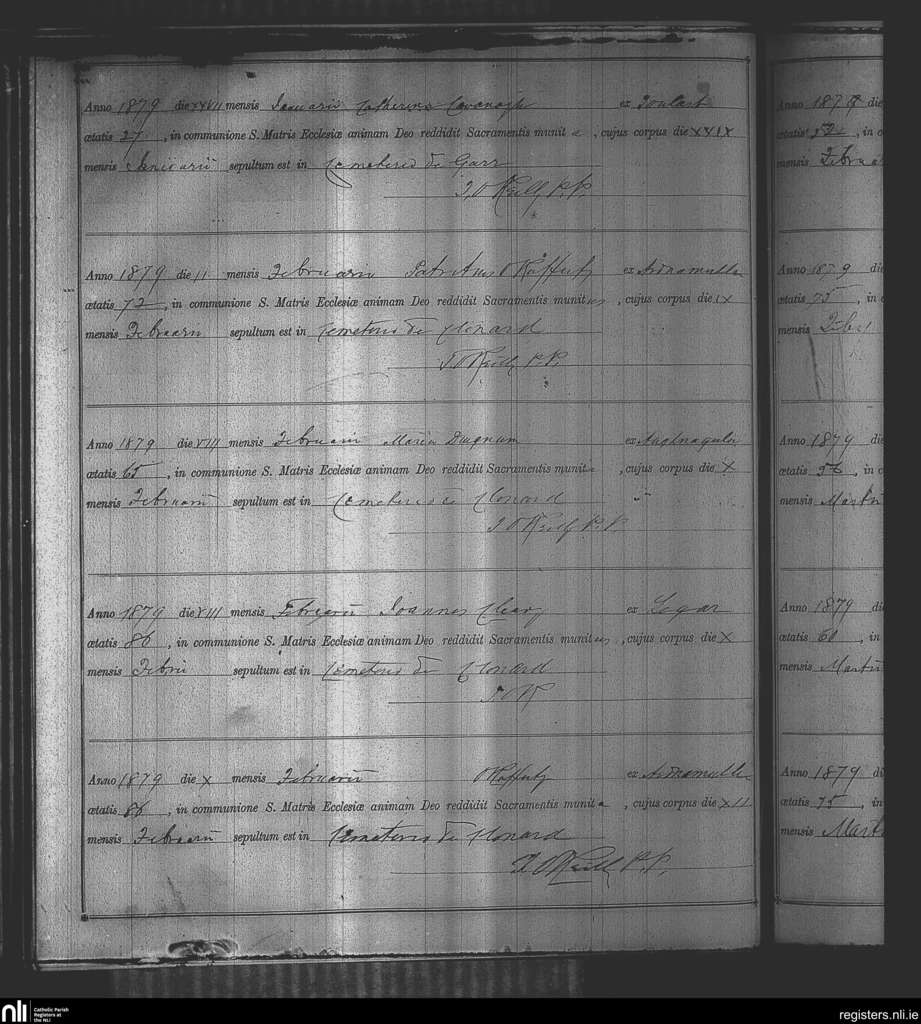 Anno 1879 die XXVII mensis Januarii Catherina Cavanagh ex
ætatis 27, in communione S. Matris Ecclesiæ animam Deo reddidit Sacramentis munita, cujus corpus die XXIX
mensis Januarii sepultum est in Cemeterio de Garr
T. O'Reilly P.P.
Anno 1879 die mensis Februarii O'Rafferty ex Ardnamullen
ætatis 72, in communione S. Matris Ecclesiæ animam Deo reddidit Sacramentis munitus, cujus corpus die IX
mensis Februarii sepultum est in Cemeterio de Clonard
T. O'Reilly P.P.
Anno 1879 die VIII mensis Februarii Maria Duignam ex
ætatis 65, in communione S. Matris Ecclesiæ animam Deo reddidit Sacramentis munita, cujus corpus die X
mensis Februarii sepultum est in Cemeterio de Clonard
T. O'Reilly P.P.
Anno 1879 die VIII mensis Februarii Joannes Cleary ex Legar
ætatis 86, in communione S. Matris Ecclesiæ animam Deo reddidit Sacramentis munitus, cujus corpus die X
mensis sepultum est in Cemeterio de Clonard
T. O'R
Anno 1879 die X mensis Februarii O'Rafferty ex Ardnamullen
ætatis 86, in communione S. Matris Ecclesiæ animam Deo reddidit Sacramentis munita, cujus corpus die XII
mensis Februarii sepultum est in Cemeterio de Clonard
T. O'Reilly P.P.
Anno 1879 die
ætatis 52, in c
mensis Februar
Anno 1879 die
ætatis 75, in c
mensis
Anno 1879 die
ætatis 56, in c
mensis Martii
Anno 1879 di
ætatis 60, in
mensis Martii
Anno 1879 di
ætatis 75, in
mensis Marti
nli Catholic Parish
Registers at
the NLI
registers.nli.ie